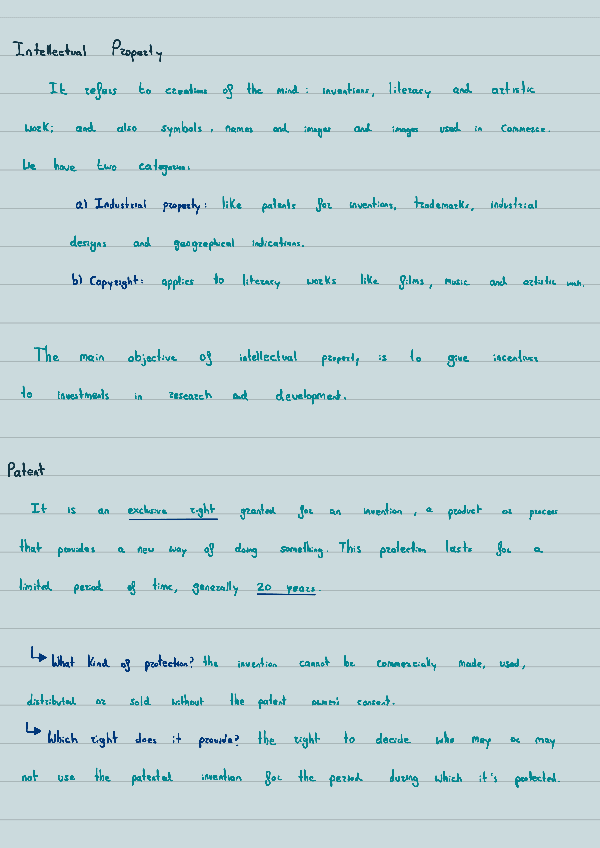 Intellectual Property
It refers to creations of the mind: inventions, literacy and artistic
work; and also symbols, names and images and images used in commerce.
We have two categories:
a) Industrial property: like patents for inventions, trademarks, industrial
designs and geographical indications.
b) Copyright: applies to literacy works like films, music and artistic work.
The main objective of intellectual property is to give incentives
to investments in research and development.
Patent
It is an exclusive right granted for an invention, a product or process
that provides a new way of doing something. This protection lasts for a
limited period of time, generally 20 years.
What Kind of protection? the invention cannot be commercially made, used,
distributed or sold without the patent owner's consent.
Which right does it provide? the right to decide who may or may
not use the patented invention for the period during which it's protected.